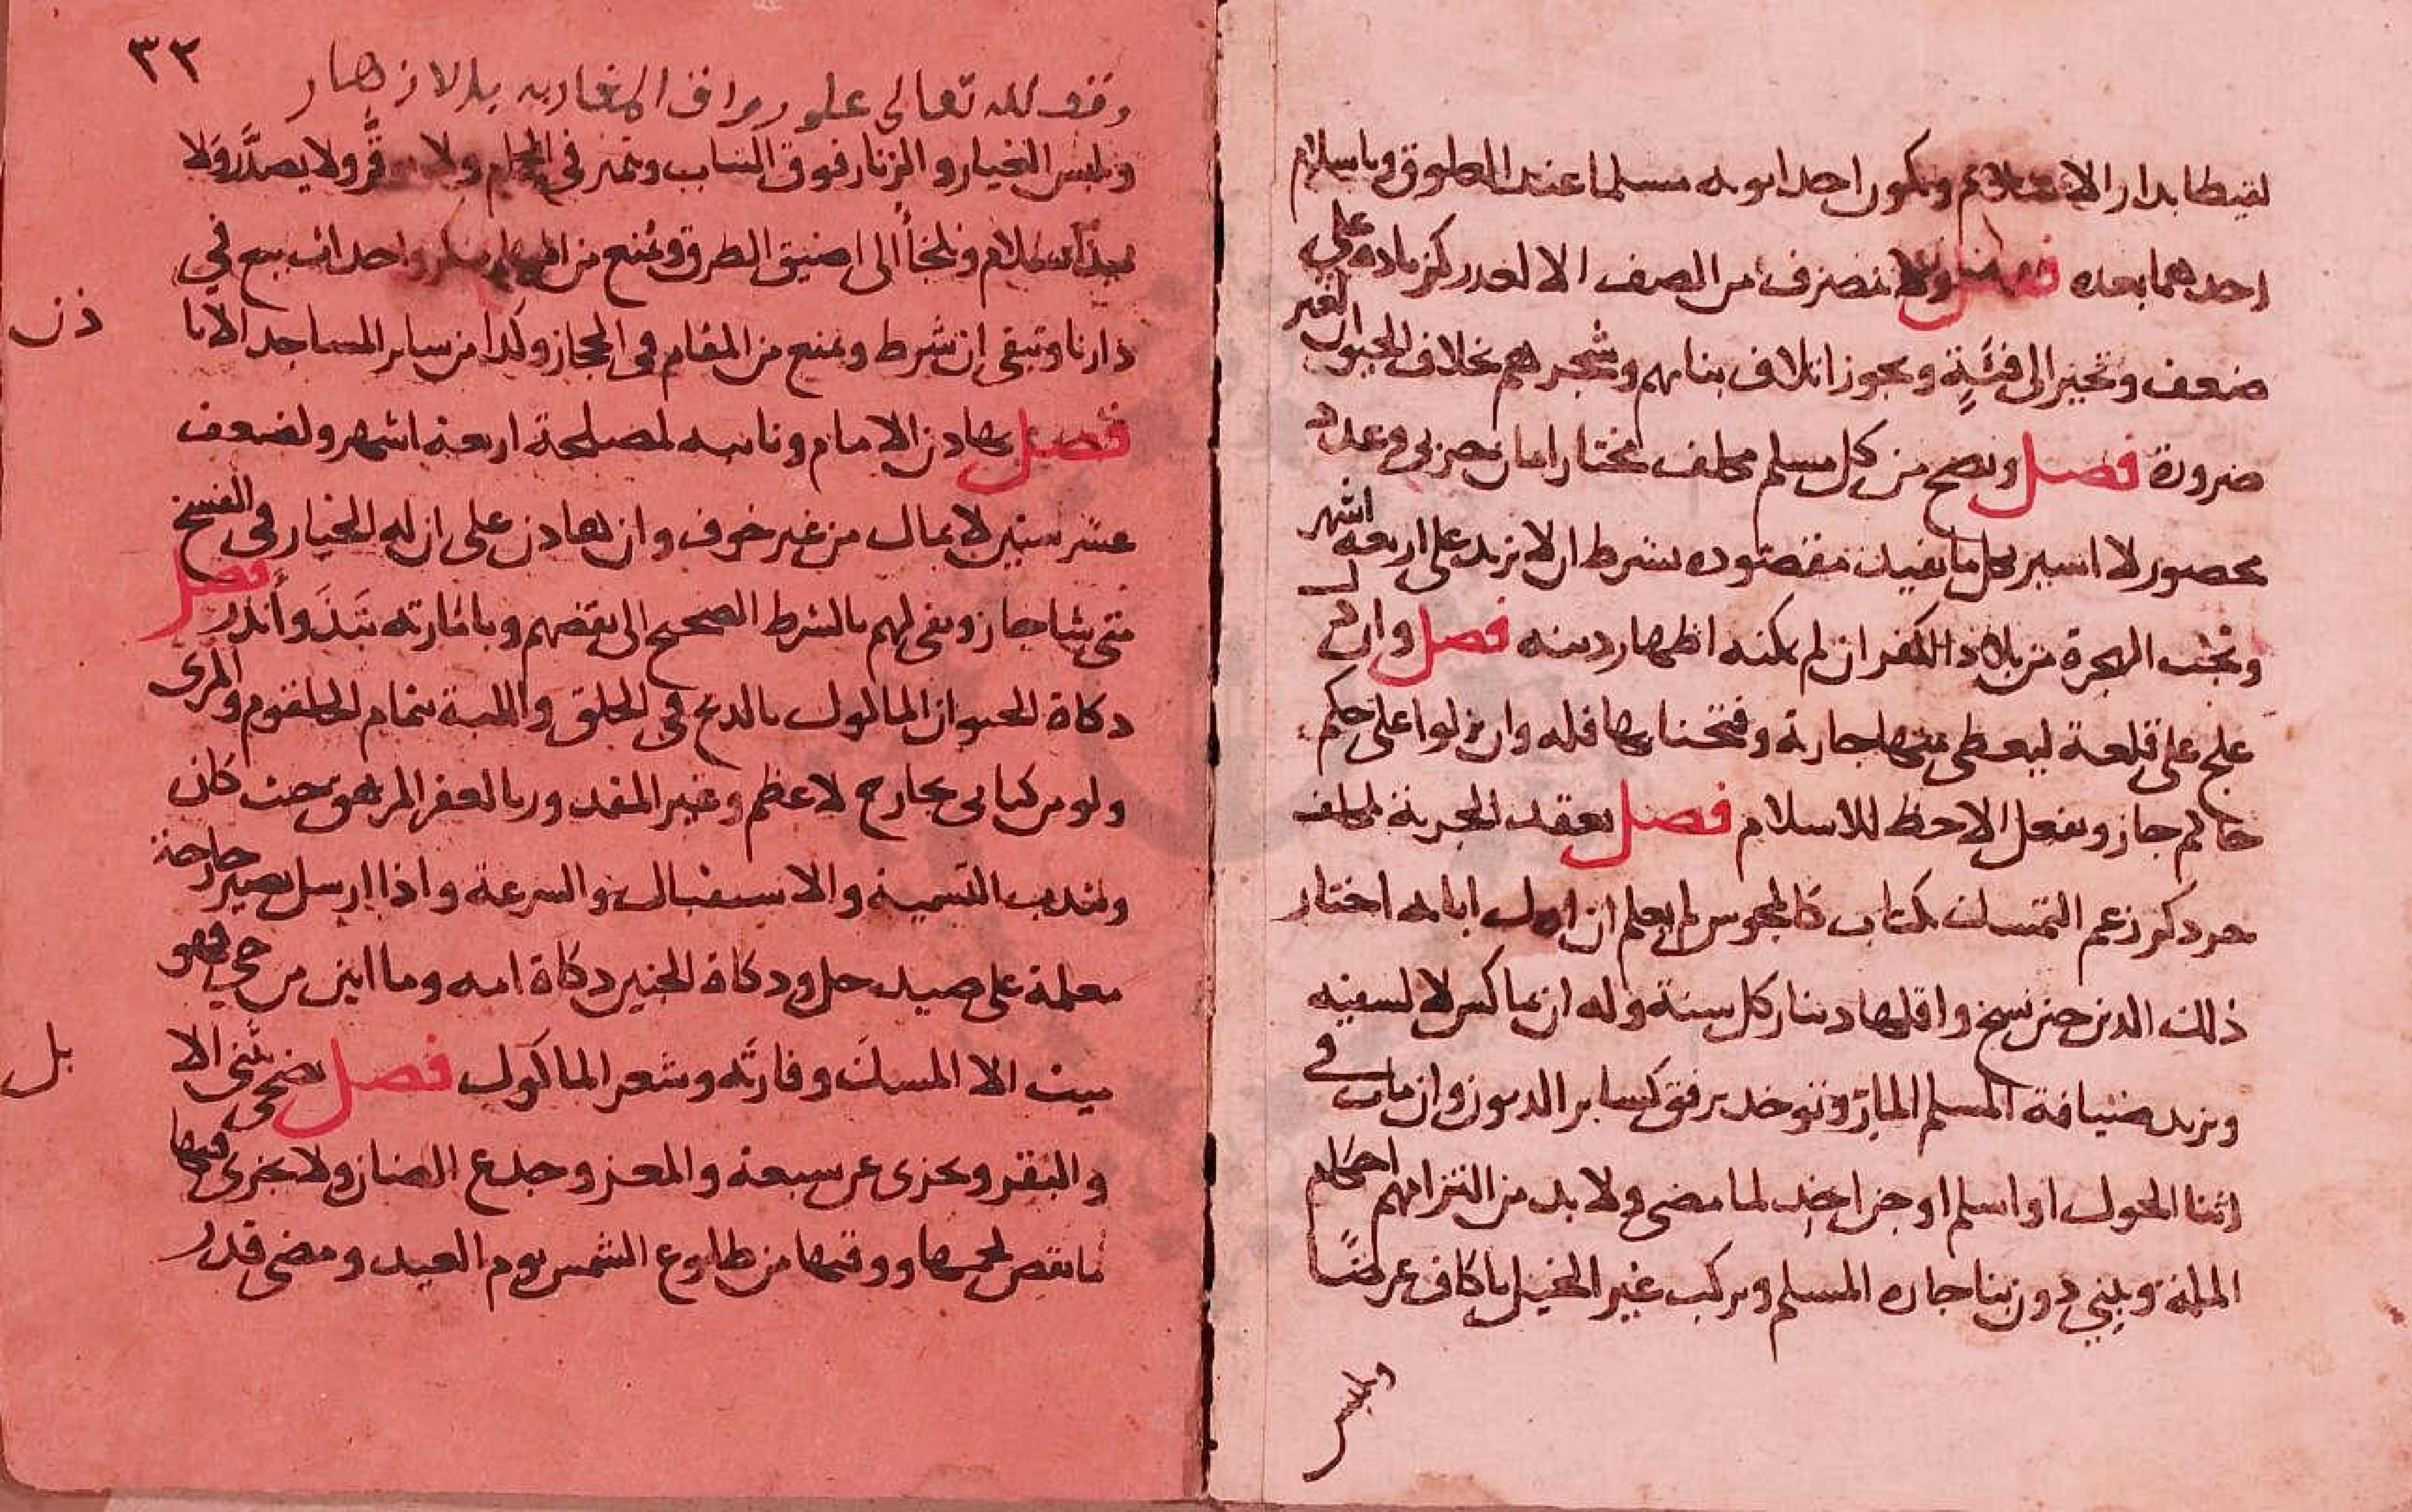 لقيطا بدار الاسلام وبكون احد ابويه مسلما عند العلوق وباسلام
احدهما بعده فصل ولا ينصرف من الصف الا لعدر كزياده على
ضعف وتحيز الى فئةٍ ويجوز اتلاف بنايهم وشجرهم بخلاف الحيوان لغير
ضرورة فصل ويصح من كل مسلم مكلف مختار امان حربي وعدد
محصور لا اسير بكل ما يفيد مقصوده بشرط ان لا يزيد على اربعة اشهر
وتجب الهجرة من بلاد الكفر ان لم يمكنه اظهار دينه فصل وان دل
علج على قلعة ليعطى منها جارية وفتحنا بها فله وان نزلوا على حكم
حاكم جاز ويفعل الاحظ للاسلام فصل يعقد الجزية لمكلف
حر دكر زعم التمسك بكتاب كالمجوس لم يعلم ان اول ابايه اختار
ذلك الدين حين نسخ واقلها دينار كل سنة وله ان يماكس لا لسفيه
ويزيد ضيافة المسلم المارّ وتوخد برفق كساير الديون وان مات في
اثنا الحول او اسلم او جن اخد لما مضى ولا بد من التزامهم احكام
الملة ويبني دون بنا جاره المسلم ويركب غير الخيل باكاف عرضًا
ويلبس
٣٢
وقف لله تعالى على رواق المغاربه بالازهار
ويلبس الغيار والزنار فوق الثياب وتميز في الحمام ولا يوقَّر ولا يصدَّر ولا
يبدأ بسلام ويلجأ الى اضيق الطرق ويمنع من اظهار منكر واحداث بيع في
دارنا وتبقى ان شرط ويمنع من المقام في الحجاز وكدا من ساير المساجد الا با
ذن
فصل يهادن الامام ونايبه لمصلحة اربعة اشهر ولضعف
عشر سنين لا بمال من غير خوف وان هادن على ان له الخيار في الفسخ
متى شا جاز ويفى لهم بالشرط الصحيح الى نقضهم وبامارته نَبَذَ وأنذر فصل
دكاة الحيوان الماكول بالدبح في الحلق واللبة بتمام الحلقوم والمرى
ولو مركبا بى بجارح لا عظم وغير المقدور بالعقر المزهق حيث كان
ويندب التسمية والاستقبال والسرعة واذا ارسل بصير جارحة
معلمة على صيد حل ودكاة الجنين دكاة امه وما ابين من حي فهو
ميت الا المسك وفارته وشعر الماكول فصل يضحى بثنى الا
بل
والبقر ويجزى عن سبعة والمعز وجدع الضان ولا يجزى فيها
ما نقص لحمها ووقتها من طلوع الشمس يوم العيد ومضى قدر